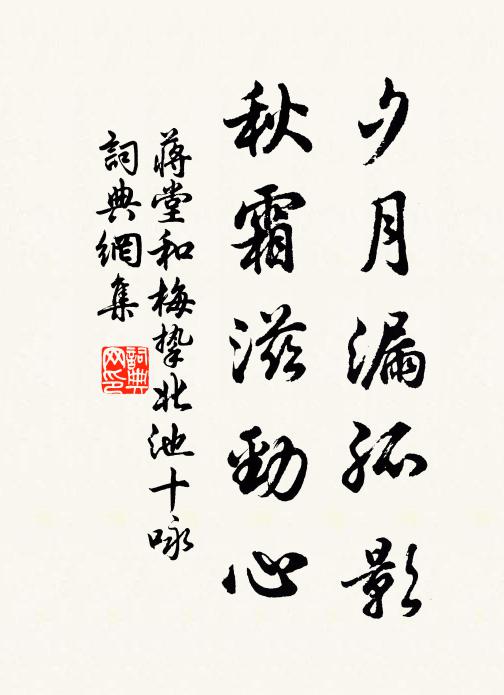 夕月漏孤影
秋霜滋勁心
蔣堂和梅摯北池十咏
詞典網集
詞典網印